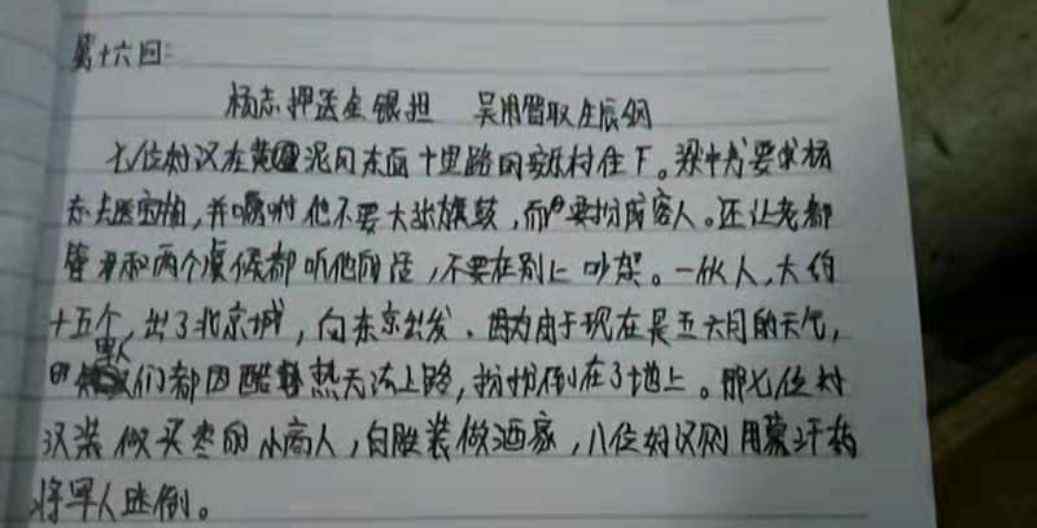 第十六回:
杨志押送金银担 吴用智取生辰纲
七位好汉在黄泥冈东面十里路的安乐村住下。梁中书要求杨
志去送宝物,并嘱咐他不要大张旗鼓,而要扮成客人。还让老都
管和两个虞候都听他的话,不要在别上吵架。一伙人,大约
十五个,出了北京城,向东京出发。因为由于现在是五六月的天气,
军人们都因酷热无法上路,纷纷倒在了地上。那七位好
汉装做买枣的小商人,白胜装做酒家,八位好汉则用蒙汗药
将军人迷倒。